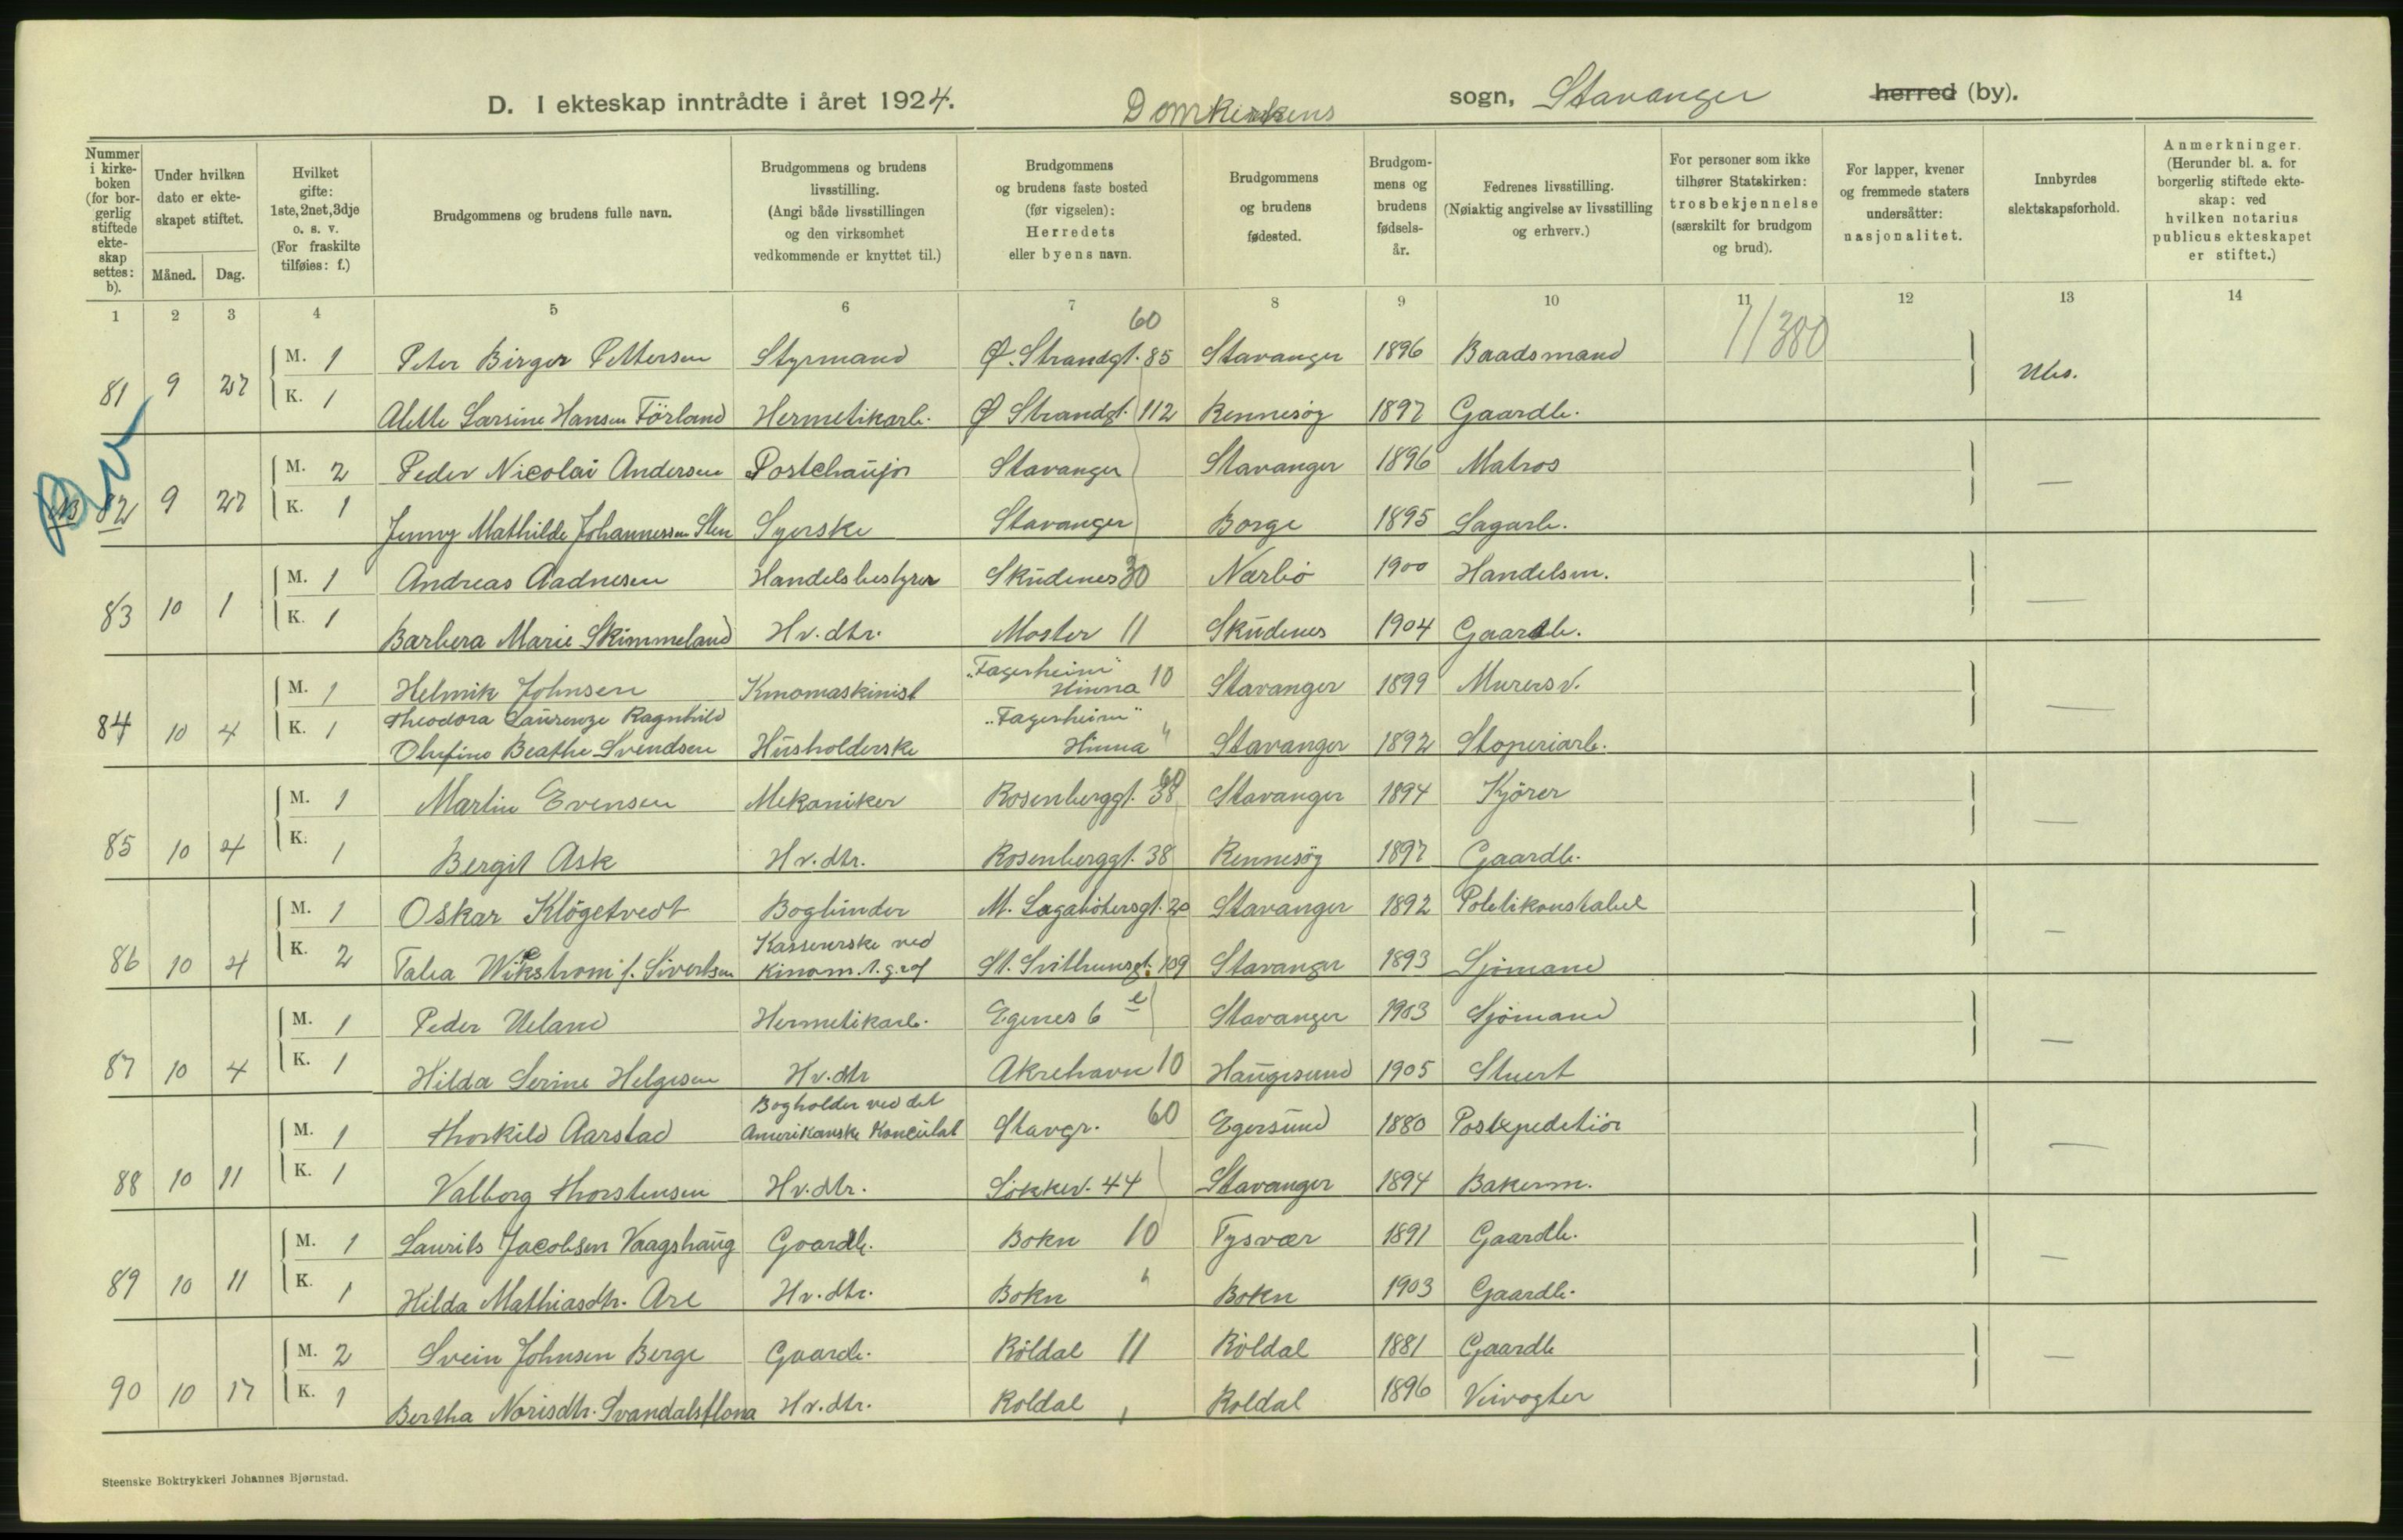 D. I ekteskap inntrådte i året 1924. Domkirkens sogn, Stavanger herred (by).
Nummer i kirkeboken (for borgerlig stiftede ekteskap settes: b).
Under hvilken dato er ekteskapet stiftet.
Måned. Dag.
Hvilket gifte: 1ste, 2net, 3dje o. s. v. (For fraskilte tilføies: f.)
Brudgommens og brudens fulle navn.
Brudgommens og brudens livsstilling. (Angi både livsstillingen og den virksomhet vedkommende er knyttet til.)
Brudgommens og brudens faste bosted (før vigselen): Herredets eller byens navn.
Brudgommens og brudens fødested.
Brudgommens og brudens fødselsår.
Fedrenes livsstilling. (Nøiaktig angivelse av livsstilling og erhverv.)
For personer som ikke tilhører Statskirken: trosbekjennelse (særskilt for brudgom og brud).
For lapper, kvener og fremmede staters undersåtter: nasjonalitet.
Innbyrdes slektskapsforhold.
Anmerkninger. (Herunder bl. a. for borgerlig stiftede ekteskap: ved hvilken notarius publicus ekteskapet er stiftet.)
1 2 3 4 5 6 7 8 9 10 11 12 13 14
60 1/380
M. 1 Peter Birger Pettersen Styrmand Ø. Strandgt. 85 Stavanger 1896 Baadsmand
81 9 27 Ubs.
K. 1 Alette Larsine Hansen Förland Hermetikarb. Ø Strandgt. 112 Rennesøy 1897 Gaardb.
M. 2 Peder Nicolai Andersen Postchaufør Stavanger Stavanger 1896 Matros
82 9 27 —
K. 1 Jenny Mathilde Johannessen Sten Syerske Stavanger Borge 1895 Sagarb.
M. 1 Andreas Aadnesen Handelsbestyrer Skudenes 30 Nærbø 1900 Handelsm.
83 10 1 —
K. 1 Barbera Marie Skimmeland Hv. dtr. Moster 11 Skudenes 1904 Gaardb.
M. 1 Helmik Johnsen Kinomaskinist "Fagerheim" Hinna 10 Stavanger 1899 Murersv.
84 10 4 —
K. 1 Theodora Laurenze Ragnhild
Olufine Beathe Svendsen Husholderske "Fagerheim" Hinna " Stavanger 1892 Stoperiarb.
M. 1 Martin Evensen Mekaniker Rosenberggt. 38 60 Stavanger 1894 Kjører
85 10 4 —
K. 1 Bergit Ask Hv. dtr. Rosenberggt. 38 Rennesøy 1897 Gaardb.
M. 1 Oskar Klögetvedt Bogbinder M. Lagabøtersgt. 20 Stavanger 1892 Politikonstabel
86 10 4 —
K. 2 Talea Wikstrom f. Sivertsen Kassererske ved Kinom. St. Svithunsgt. 109 Stavanger 1893 Sjømand
M. 1 Peder Ueland Hermetikarb. Egenes 6 e Stavanger 1903 Sjømand
87 10 4 —
K. 1 Hilda Serine Helgesen Hv. dtr Akrehavn 10 Haugesund 1905 Stuert
M. 1 Thorkild Aarstad Bogholder ved det Amerikanske Konculat Stavgr. 60 Egersund 1880 Postexpeditiør
88 10 11 —
K. 1 Valborg Thorstensen Hv. dtr. Løkkev. 44 Stavanger 1894 Bakerm.
M. 1 Laurits Jacobsen Vaagshaug Gaardb. Bokn 10 Tysvær 1891 Gaardb.
89 10 11 —
K. 1 Hilda Mathiasdtr. Are Hv. dtr. Bokn " Bokn 1903 Gaardb.
M. 2 Svein Johnsen Berge Gaardb. Röldal 11 Röldal 1881 Gaardb
90 10 17 —
K. 1 Bertha Norisdtr. Svandalsflona Hv. dtr. Roldal Roldal 1896 Veivogter
Steenske Boktrykkeri Johannes Bjørnstad.